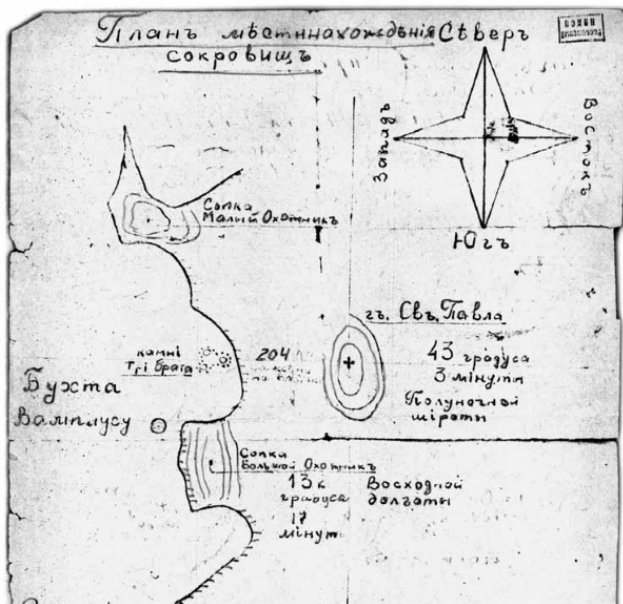 Планъ мѣстннахождѣнія
сокровищъ
Сѣверъ
Западъ
Востокъ
Югъ
Сопка
Малый Охотникъ
гъ. Свъ. Павла
камні
Трі брата
204
43 градуса
3 мінуты
Полуночной
шіроты
Бухта
Вамплусу
Сопка
Большой Охотникъ
13к
градуса
17
мінут
Восходной
долготы